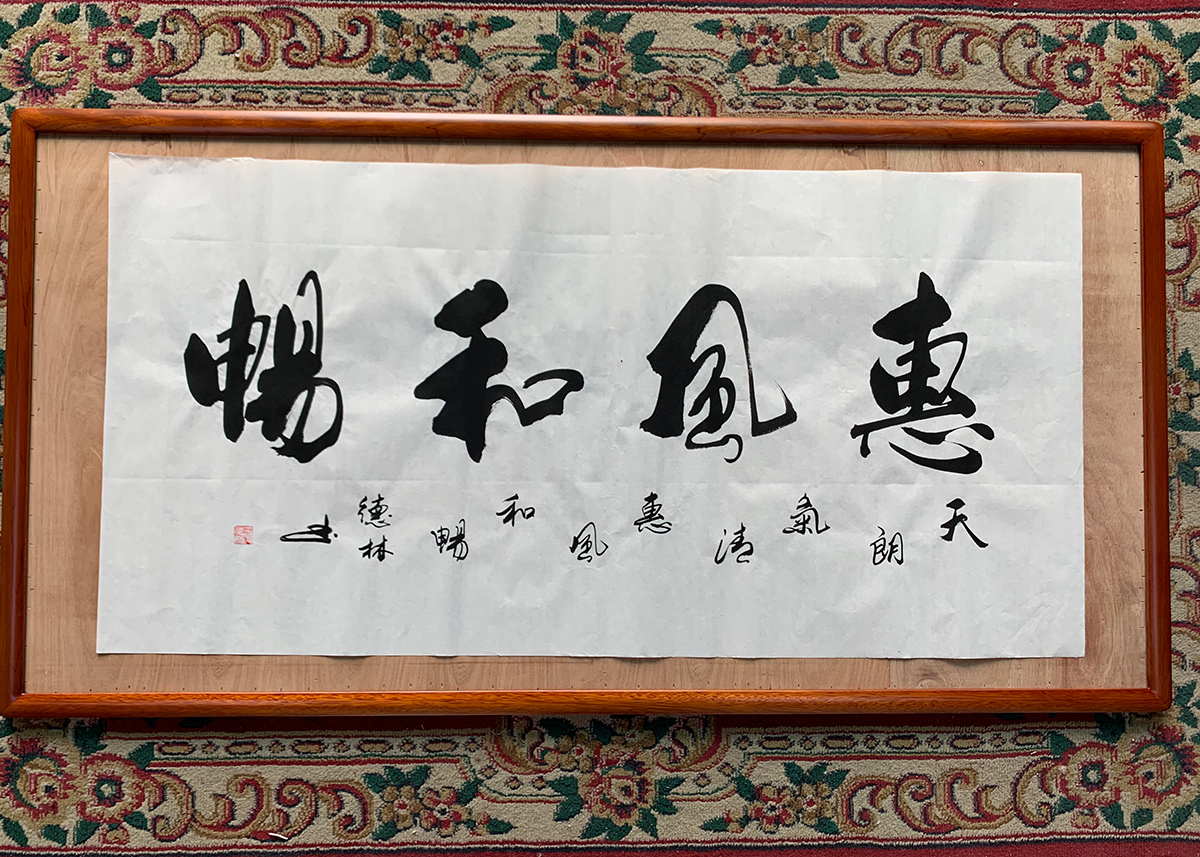 惠風和暢
天朗氣清惠風和暢
德林